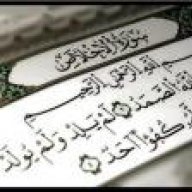 سورة الاخلاص
الله الرحمن الرحيم
الله الصمد لم يلد ولم يولد
كفوا احد